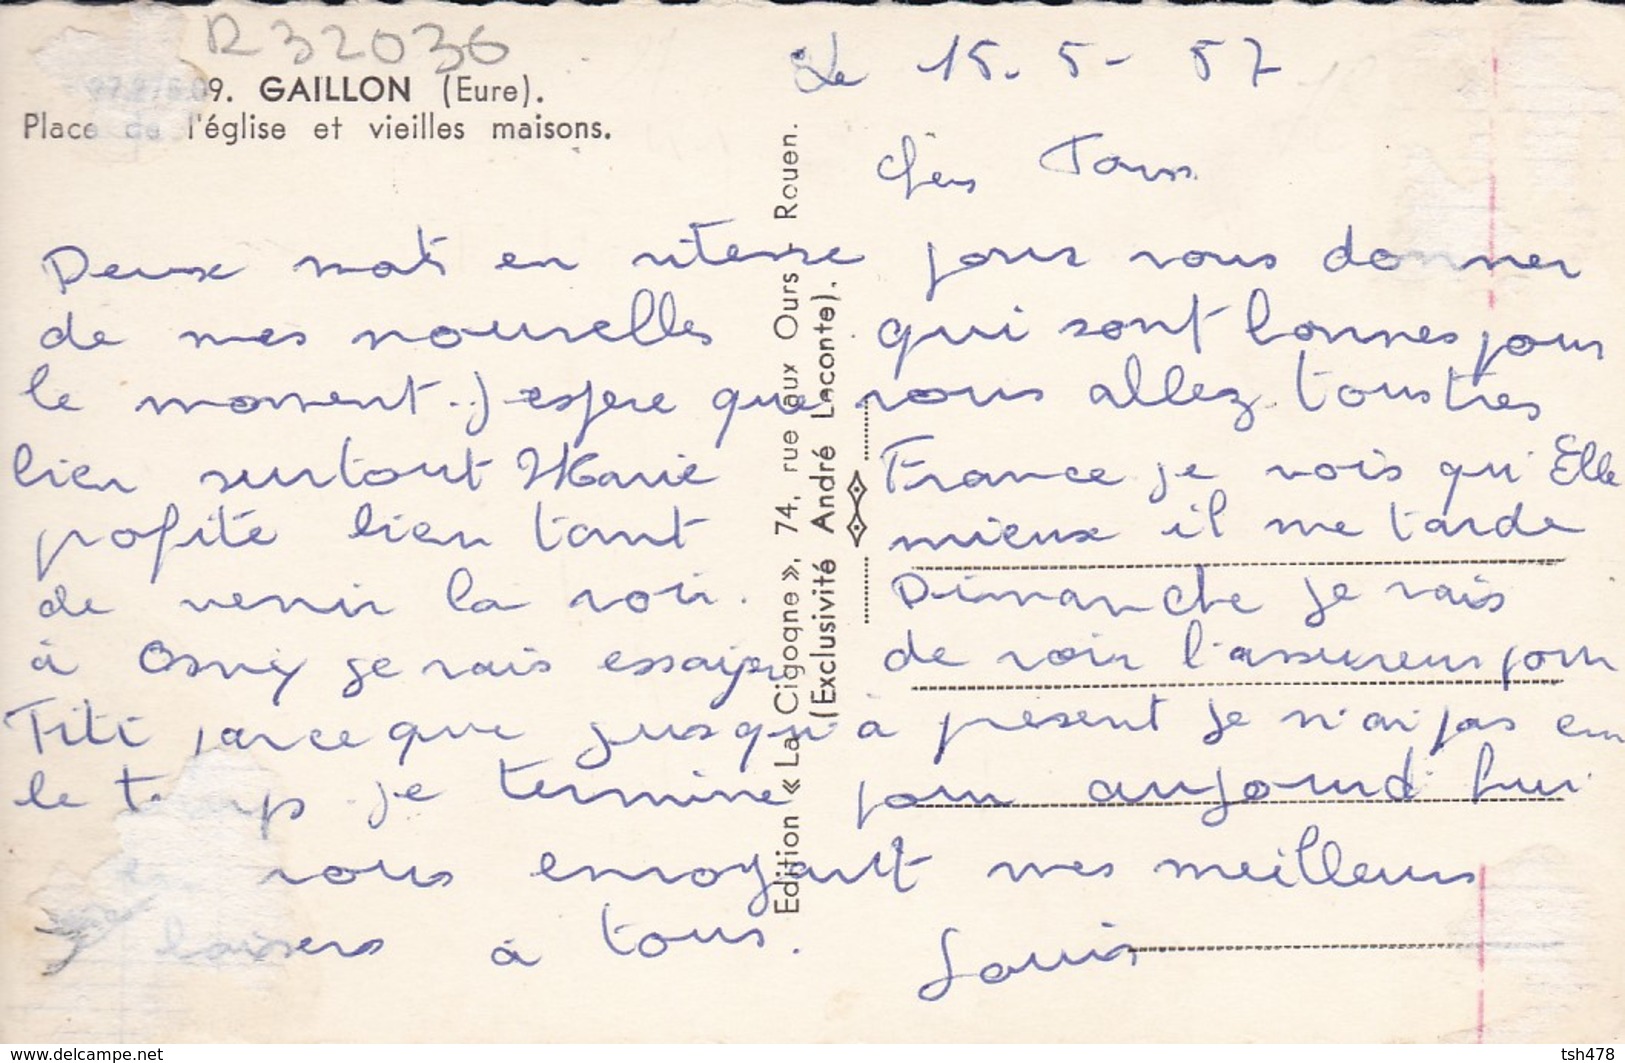 R 32036
9. GAILLON (Eure).
Place de l'église et vieilles maisons.
Le 15-5-57
Chers Tous
Deux mots en vitesse pour vous donner
de mes nouvelles qui sont bonnes pour
le moment. J espere que vous allez tous tres
bien surtout Marie France je vois qu'Elle
profite bien tant mieux il me tarde
de venir la voir. Dimanche je vais
à Osny je vais essayer de voir l'assureur pour
Titi parce que jusqu'à présent je n'ai pas eu
le temps. je termine pour aujourd'hui
en vous envoyant mes meilleurs
baisers à tous. Louis
Edition « La Cigogne », 74, rue aux Ours - Rouen.
(Exclusivité André Leconte).
www.delcampe.net
tsh478